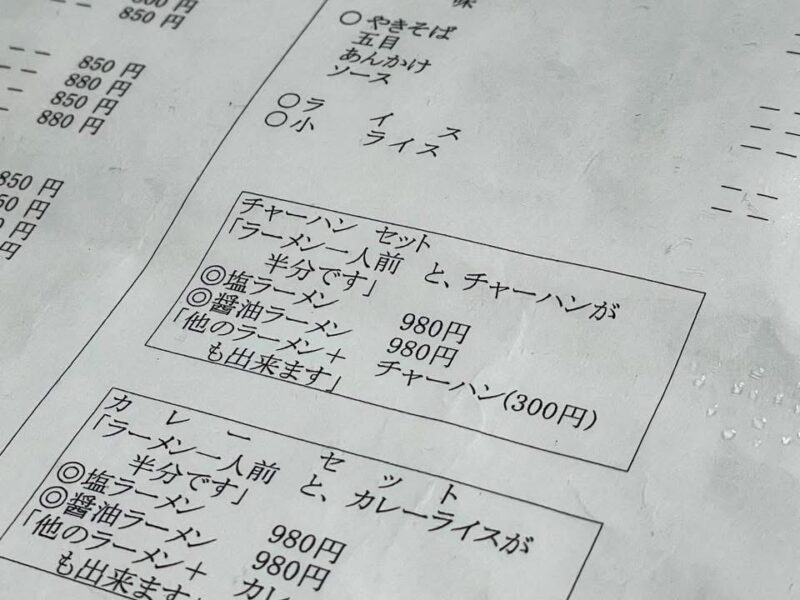 850 円
850 円
880 円
850 円
880 円
850 円
○ やきそば
五目
あんかけ
ソース
○ラ イ ス
○小 ライス
チャーハン セット
「ラーメン一人前 と、チャーハンが
半分です」
◎塩ラーメン 980円
◎醤油ラーメン 980円
「他のラーメン＋ チャーハン(300円)
も出来ます」
カ レ ー セ ッ ト
「ラーメン一人前 と、カレーライスが
半分です」
◎塩ラーメン 980円
◎醤油ラーメン 980円
「他のラーメン＋
も出来ます」